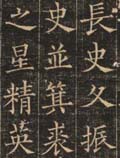 長史久振
史並箕裘
之星精英